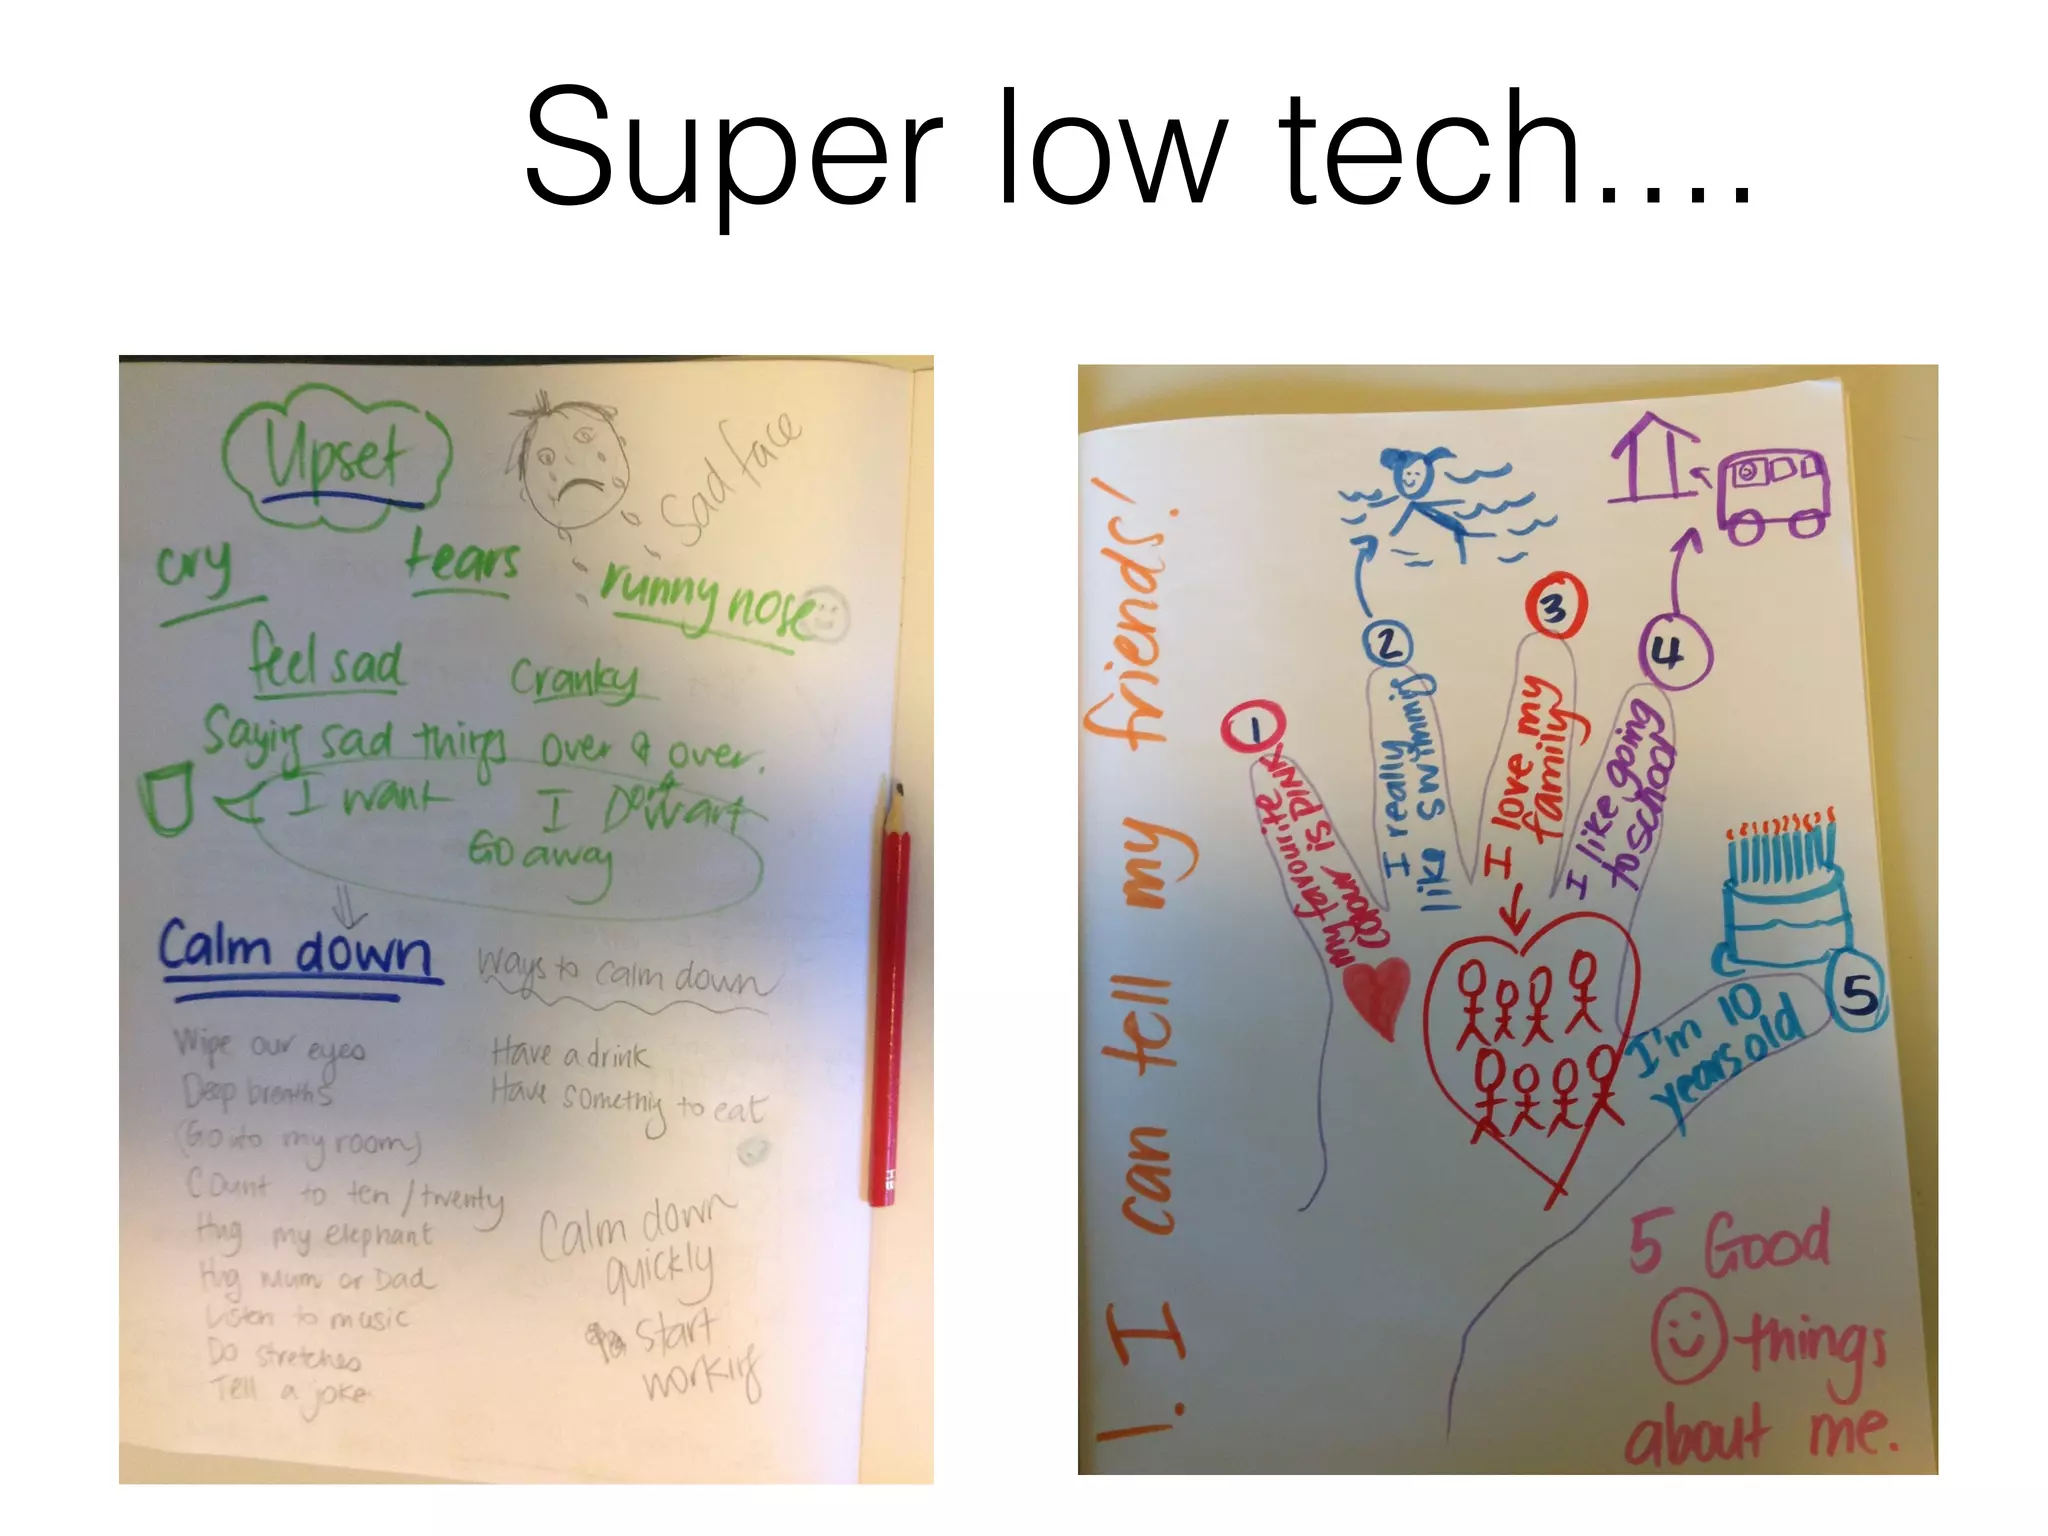 Super low tech....
Upset
Sad face
cry
tears
runny nose
feel sad
cranky
Saying sad things over & over.
I want
I Don't want
Go away
Calm down
Ways to calm down
Wipe our eyes
Deep breaths
(Go to my room)
Count to ten / twenty
Hug my elephant
Hug mum or Dad
Listen to music
Do stretches
Tell a joke
Have a drink
Have something to eat
Calm down
quickly
start
working
1. I can tell my friends!
1
my favourite
colour is PINK
2
I really
like swimming
3
I love my
family
4
I like going
to school
5
I'm 10
years old
5 Good
things
about me.